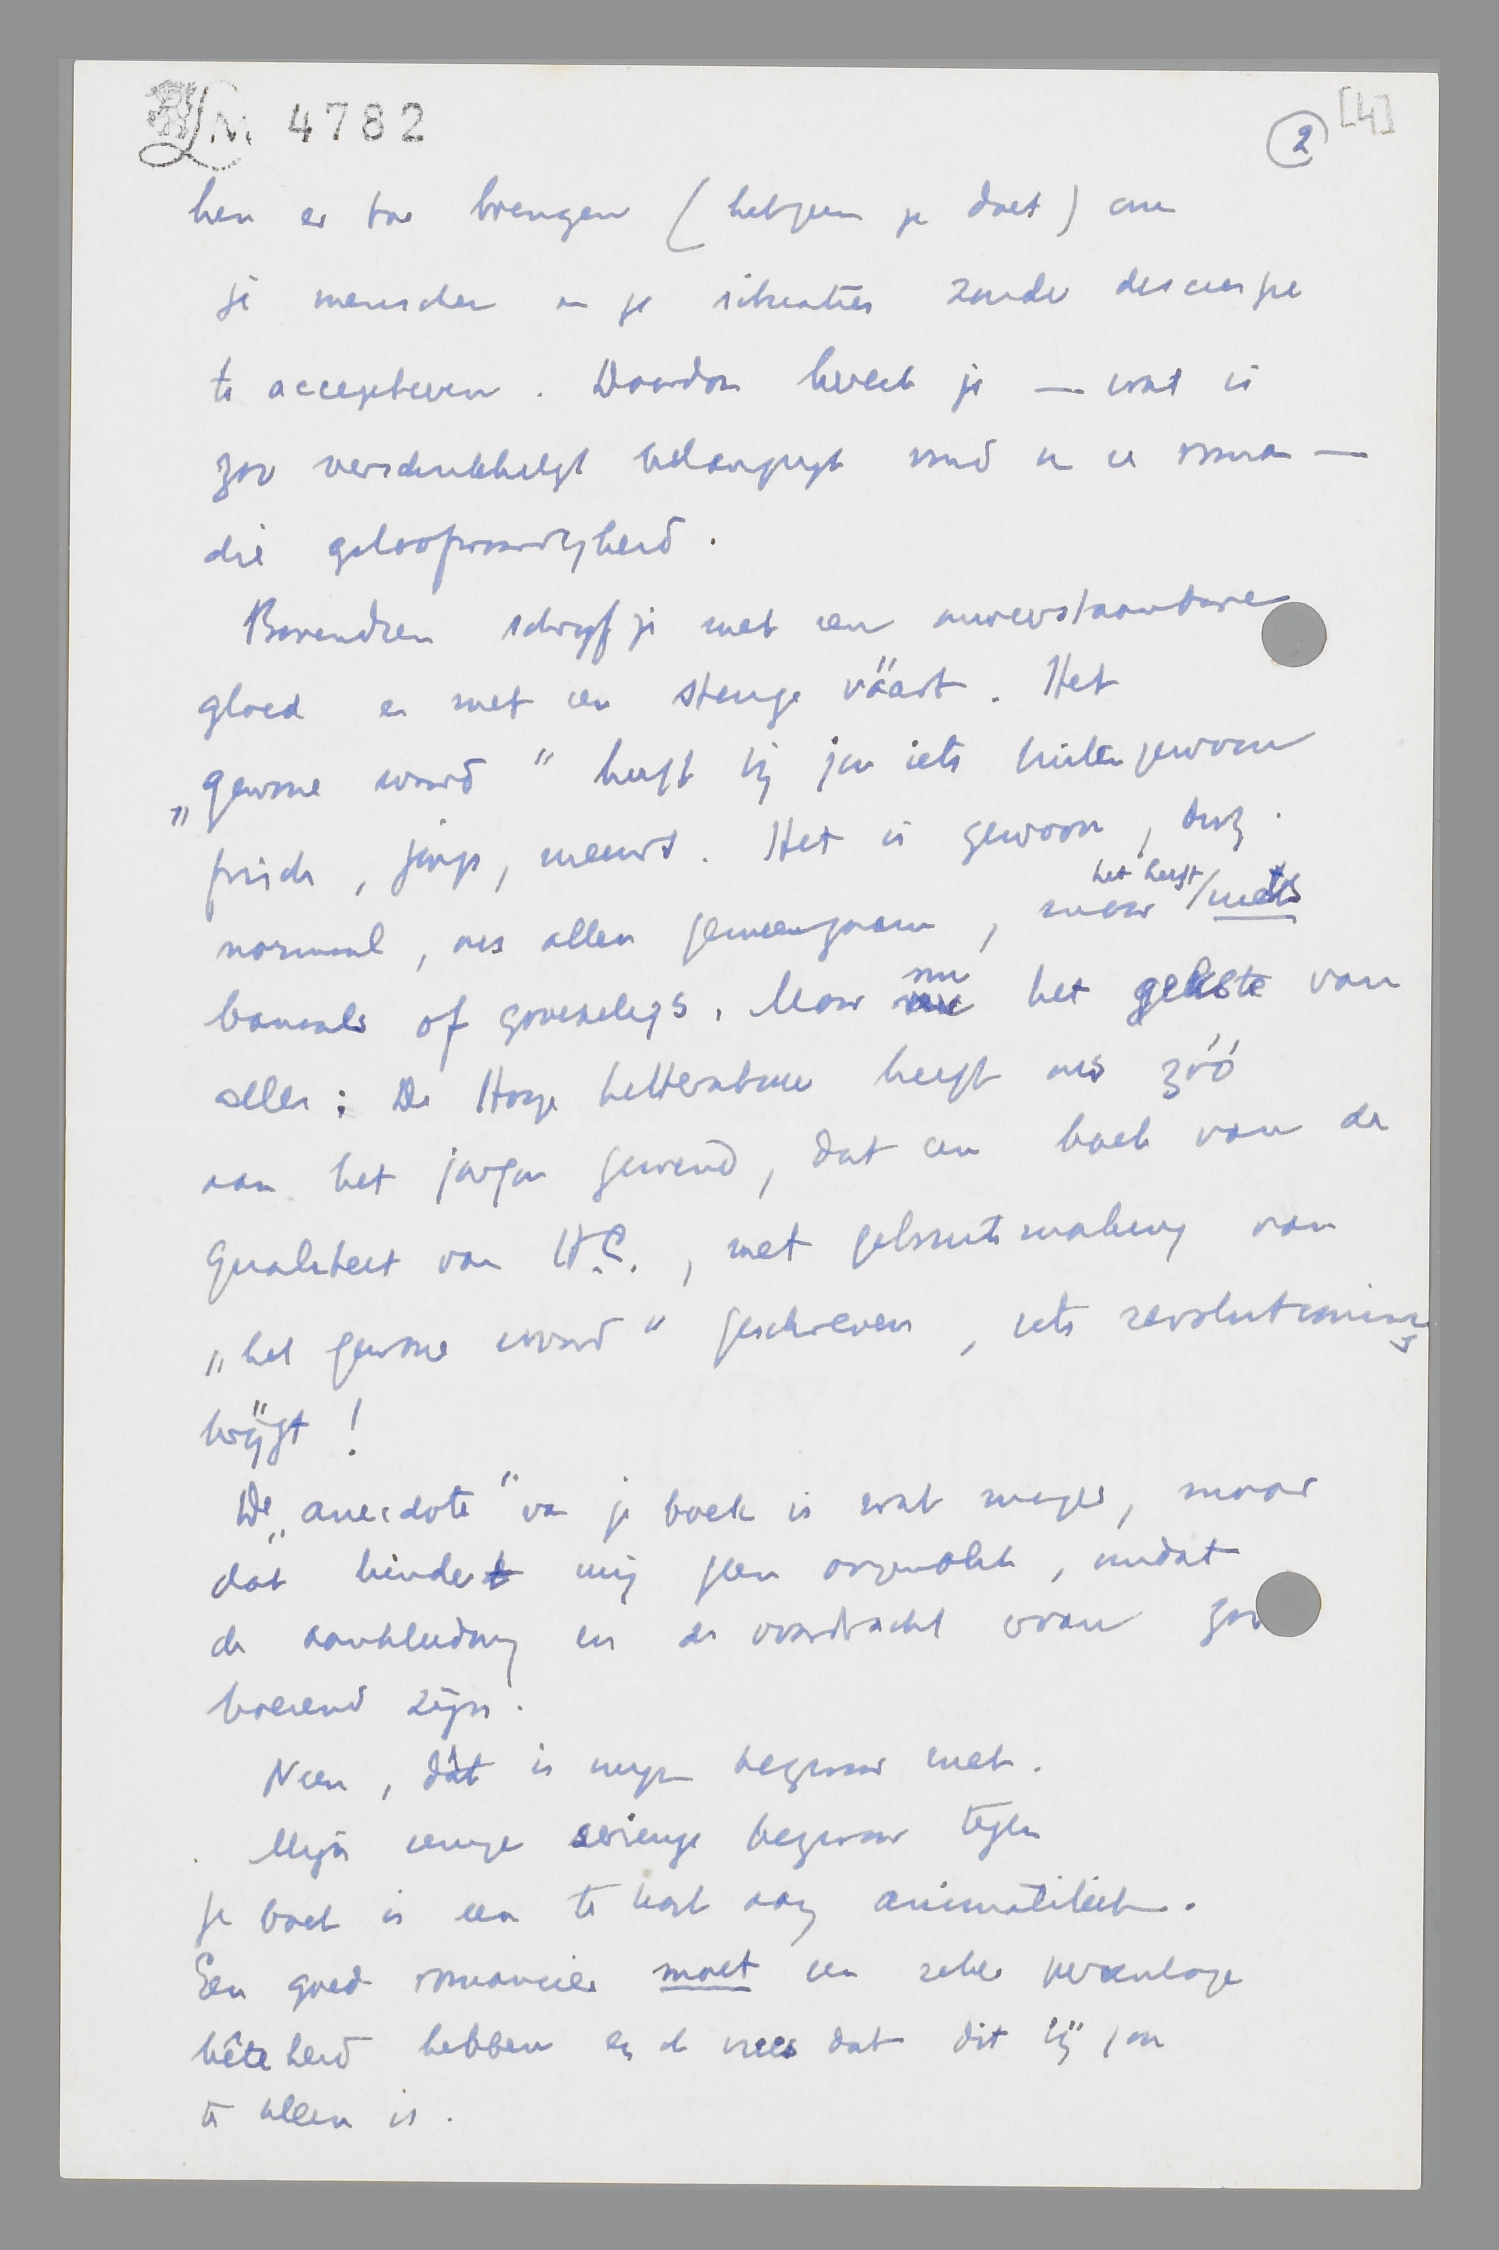 LM 4782
2 [4]
hen er toe brengen (hetgeen je doet) om
je menschen en je situaties zonder
te accepteren. Daardoor kweek je — wat is
zoo verschrikkelijk belangrijk vind in een roman —
die geloofwaardigheid.
Barendsen schrijf je met een onweerstaanbare
gloed en met een stenge väart. Het
„gewone woord" heeft bij jou iets buitengewoon
frisch, jongs, nieuws. Het is gewoon, d.w.z.
normaal, ons allen gemeenzaam, maar het heeft / niets
banaals of groezeligs. Maar nu het gekste van
alles: De Hooge letterkunde heeft ons zóó
aan het jargon gewend, dat een boek van de
qualiteit van H.C., met gebruikmaking van
„het gewone woord" geschreven, iets revolutionnairs
krijgt!
De „anecdote" van je boek is wat mager, maar
dat hindert mij geen oogenblik, omdat
de aankleeding en de voordracht ervan zoo
boeiend zijn.
Neen, dàt is mijn bezwaar niet.
Mijn eenige eenige bezwaar tegen
je boek is een te kort aan animaliteit.
Een goed romancier moet een zeker percentage
bêteheid hebben en ik vrees dat dit bij jou
te klein is.